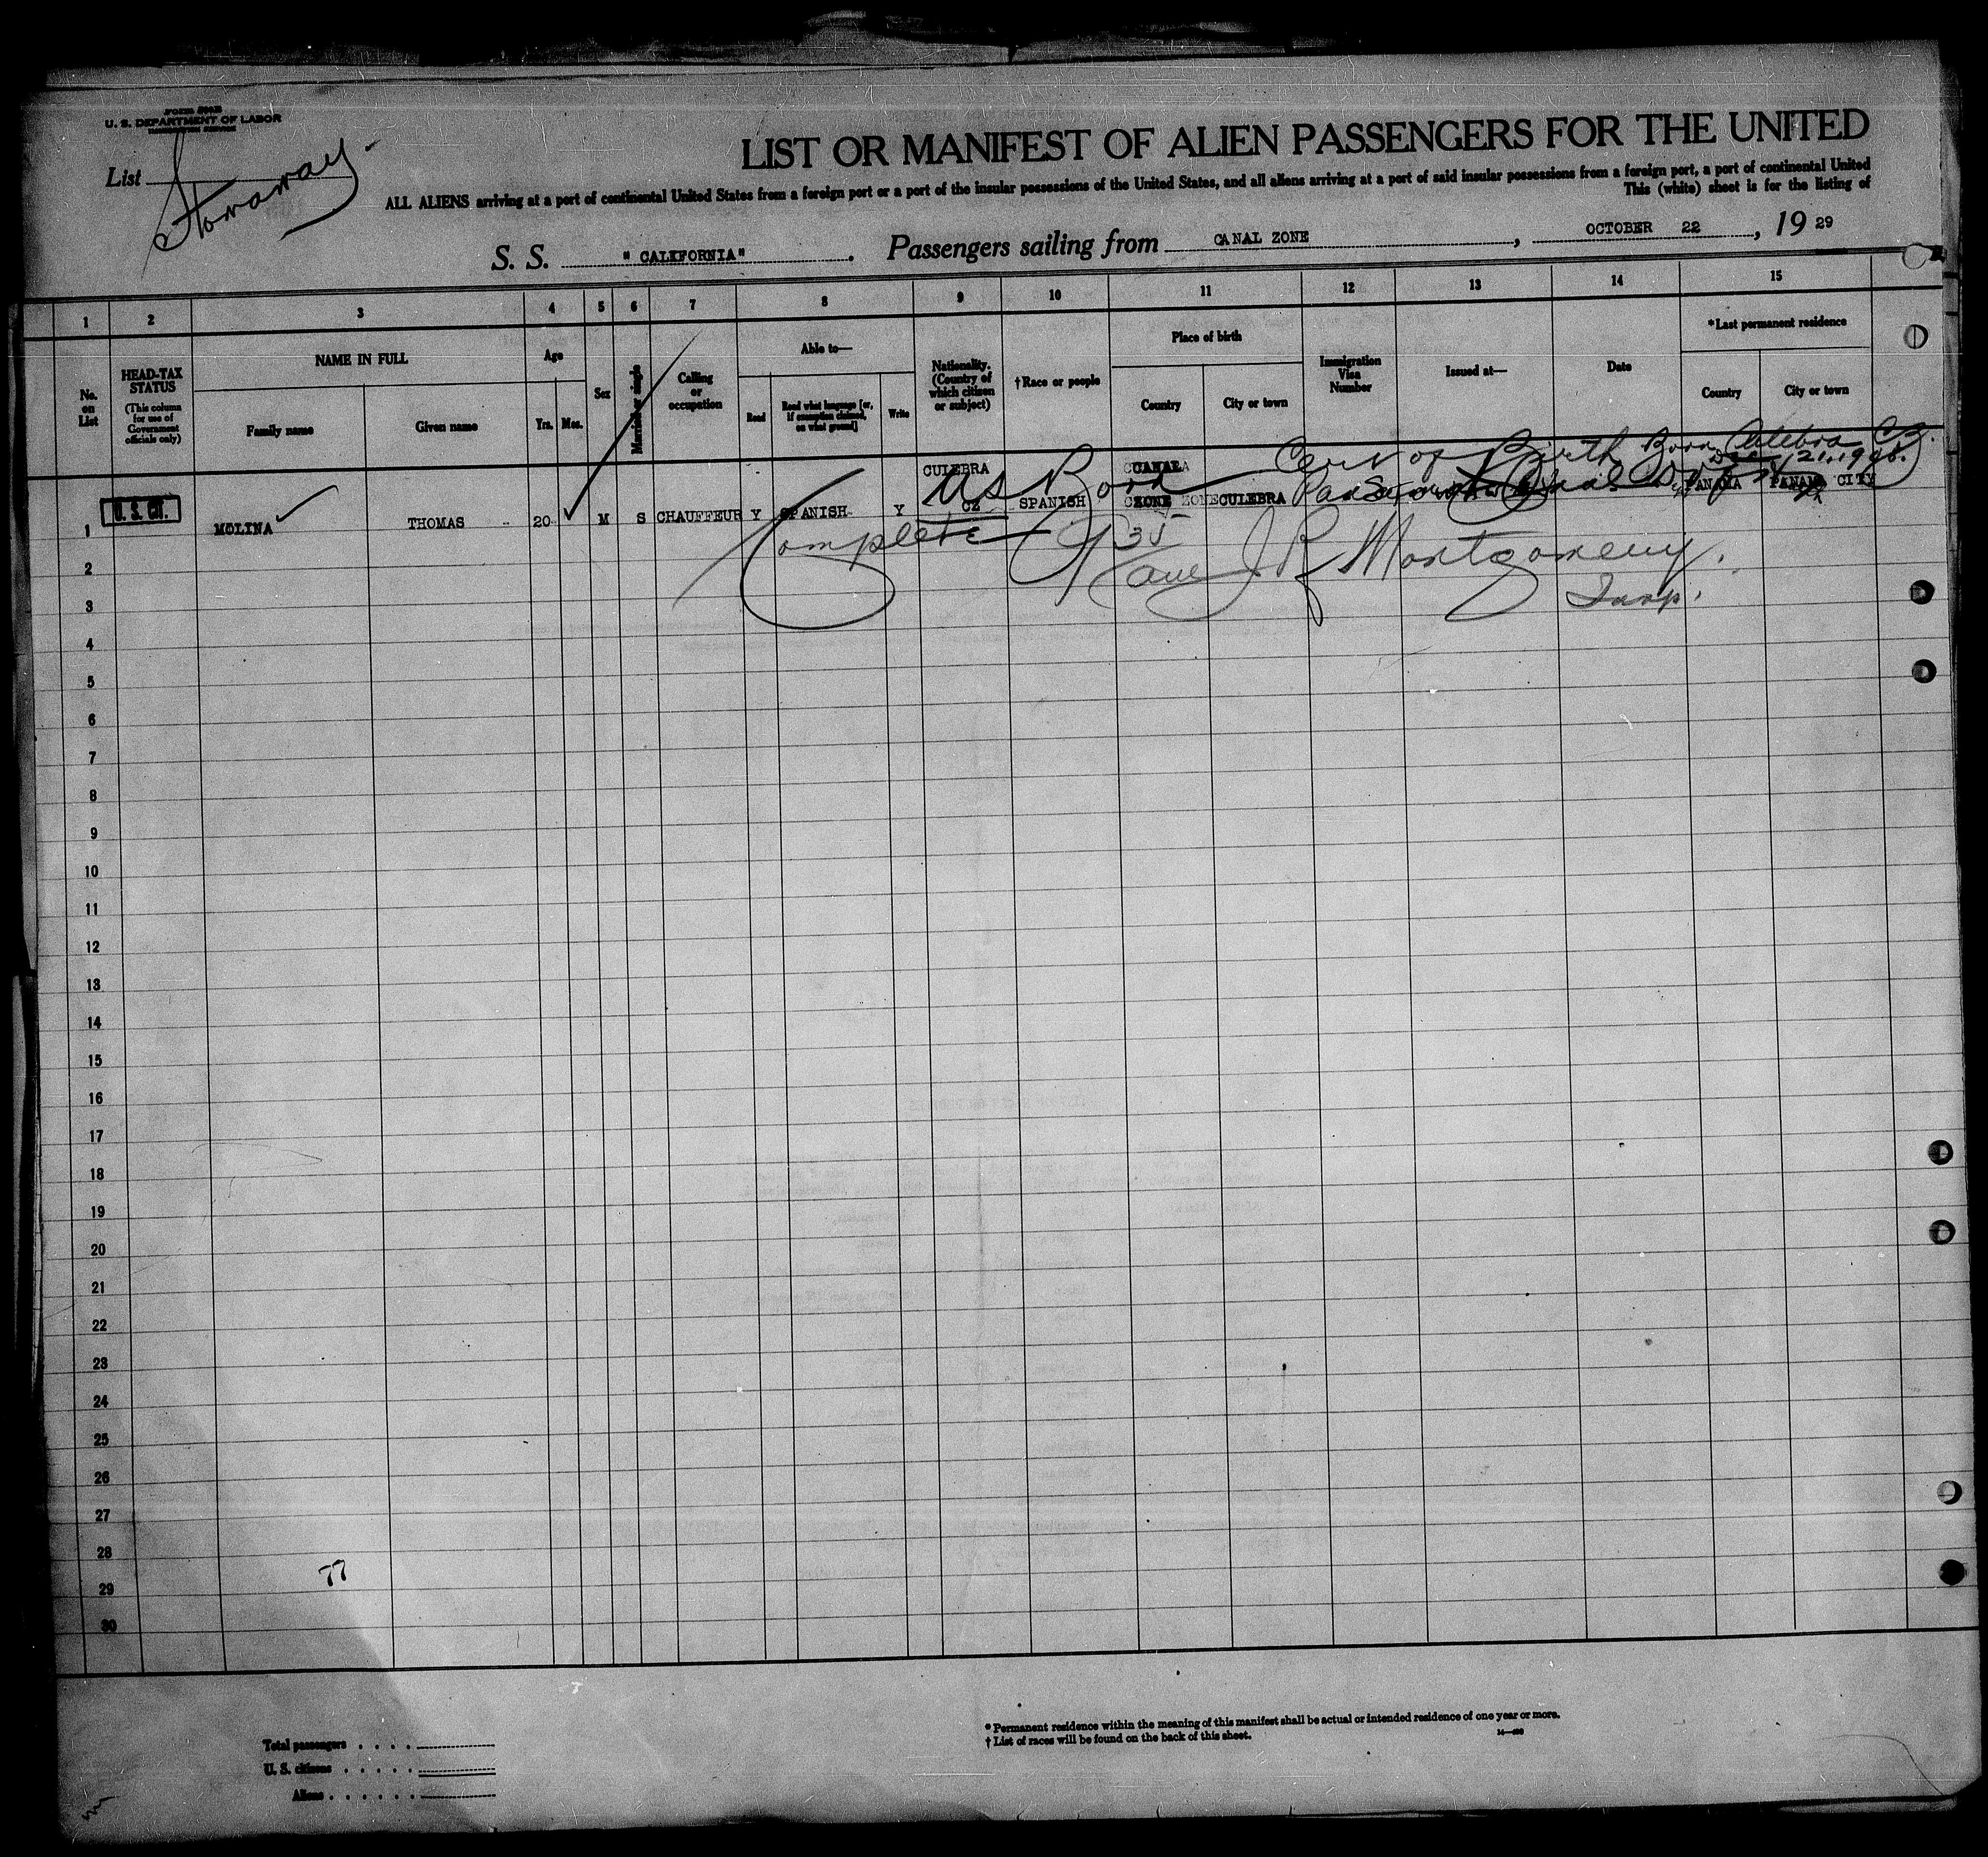 U. S. DEPARTMENT OF LABOR
List Stowaway
LIST OR MANIFEST OF ALIEN PASSENGERS FOR THE UNITED
ALL ALIENS arriving at a port of continental United States from a foreign port or a port of the insular possessions of the United States, and all aliens arriving at a port of said insular possessions from a foreign port, a port of continental United
This (white) sheet is for the listing of
S. S. "CALIFORNIA". Passengers sailing from CANAL ZONE, OCTOBER 22, 19 29
1 2 3 4 5 6 7 8 9 10 11 12 13 14 15
No. on List
HEAD-TAX STATUS (This column for use of Government officials only)
NAME IN FULL
Family name Given name
Age
Yrs. Mos.
Sex
Married or single
Calling or occupation
Able to—
Read Read what language [or, if exemption claimed, on what ground] Write
Nationality. (Country of which citizen or subject)
†Race or people
Place of birth
Country City or town
Immigration Visa Number
Issued at—
Date
*Last permanent residence
Country City or town
Cert of Birth Born Culebra C.Z.
Dec 21, 1908.
1 U. S. CIT. MOLINA THOMAS 20 M S CHAUFFEUR Y SPANISH Y CULEBRA CZ SPANISH CANAL ZONE CULEBRA PANAMA PANAMA CITY
US Born
Complete
J R Montgomery
Insp.
2
3
4
5
6
7
8
9
10
11
12
13
14
15
16
17
18
19
20
21
22
23
24
25
26
27
28
77
29
30
* Permanent residence within the meaning of this manifest shall be actual or intended residence of one year or more.
† List of races will be found on the back of this sheet.
Total passengers
U. S. citizens
Aliens